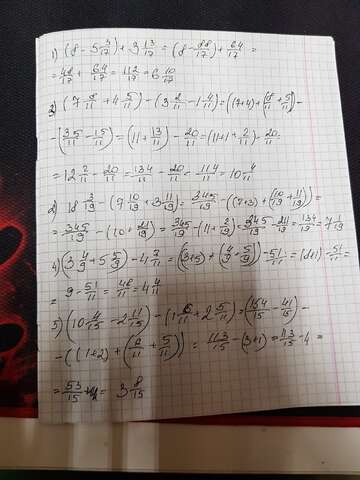 1) (8 - 5 4/17) + 3 13/17 = (8 - 88/17) + 64/17 =
= 48/17 + 64/17 = 112/17 = 6 10/17
3) (7 8/11 + 4 5/11) - (3 2/11 - 1 4/11) = (7+4) + (8/11 + 5/11) -
- (35/11 - 15/11) = (11 + 13/11) - 20/11 = (11+1+2/11) - 20/11 =
= 12 2/11 - 20/11 = 134/11 - 20/11 = 114/11 = 10 4/11
2) 18 3/19 - (9 10/19 + 3 11/19) = 345/19 - ((7+3) + (10/19 + 11/19)) =
= 345/19 - (10 + 21/19) = 345/19 - (11 + 2/19) = 345/19 - 211/19 = 134/19 = 7 1/19
4) (3 4/9 + 5 5/9) - 4 7/11 = (3+5) + (4/9 + 5/9) - 51/11 = (8+1) - 51/11 =
= 9 - 51/11 = 48/11 = 4 4/11
5) (10 4/15 - 2 11/15) - (1 6/11 + 2 5/11) = (154/15 - 41/15) -
- ((1+2) + (6/11 + 5/11)) = 113/15 - (3+1) = 113/15 - 4 =
= 53/15 = 3 8/15